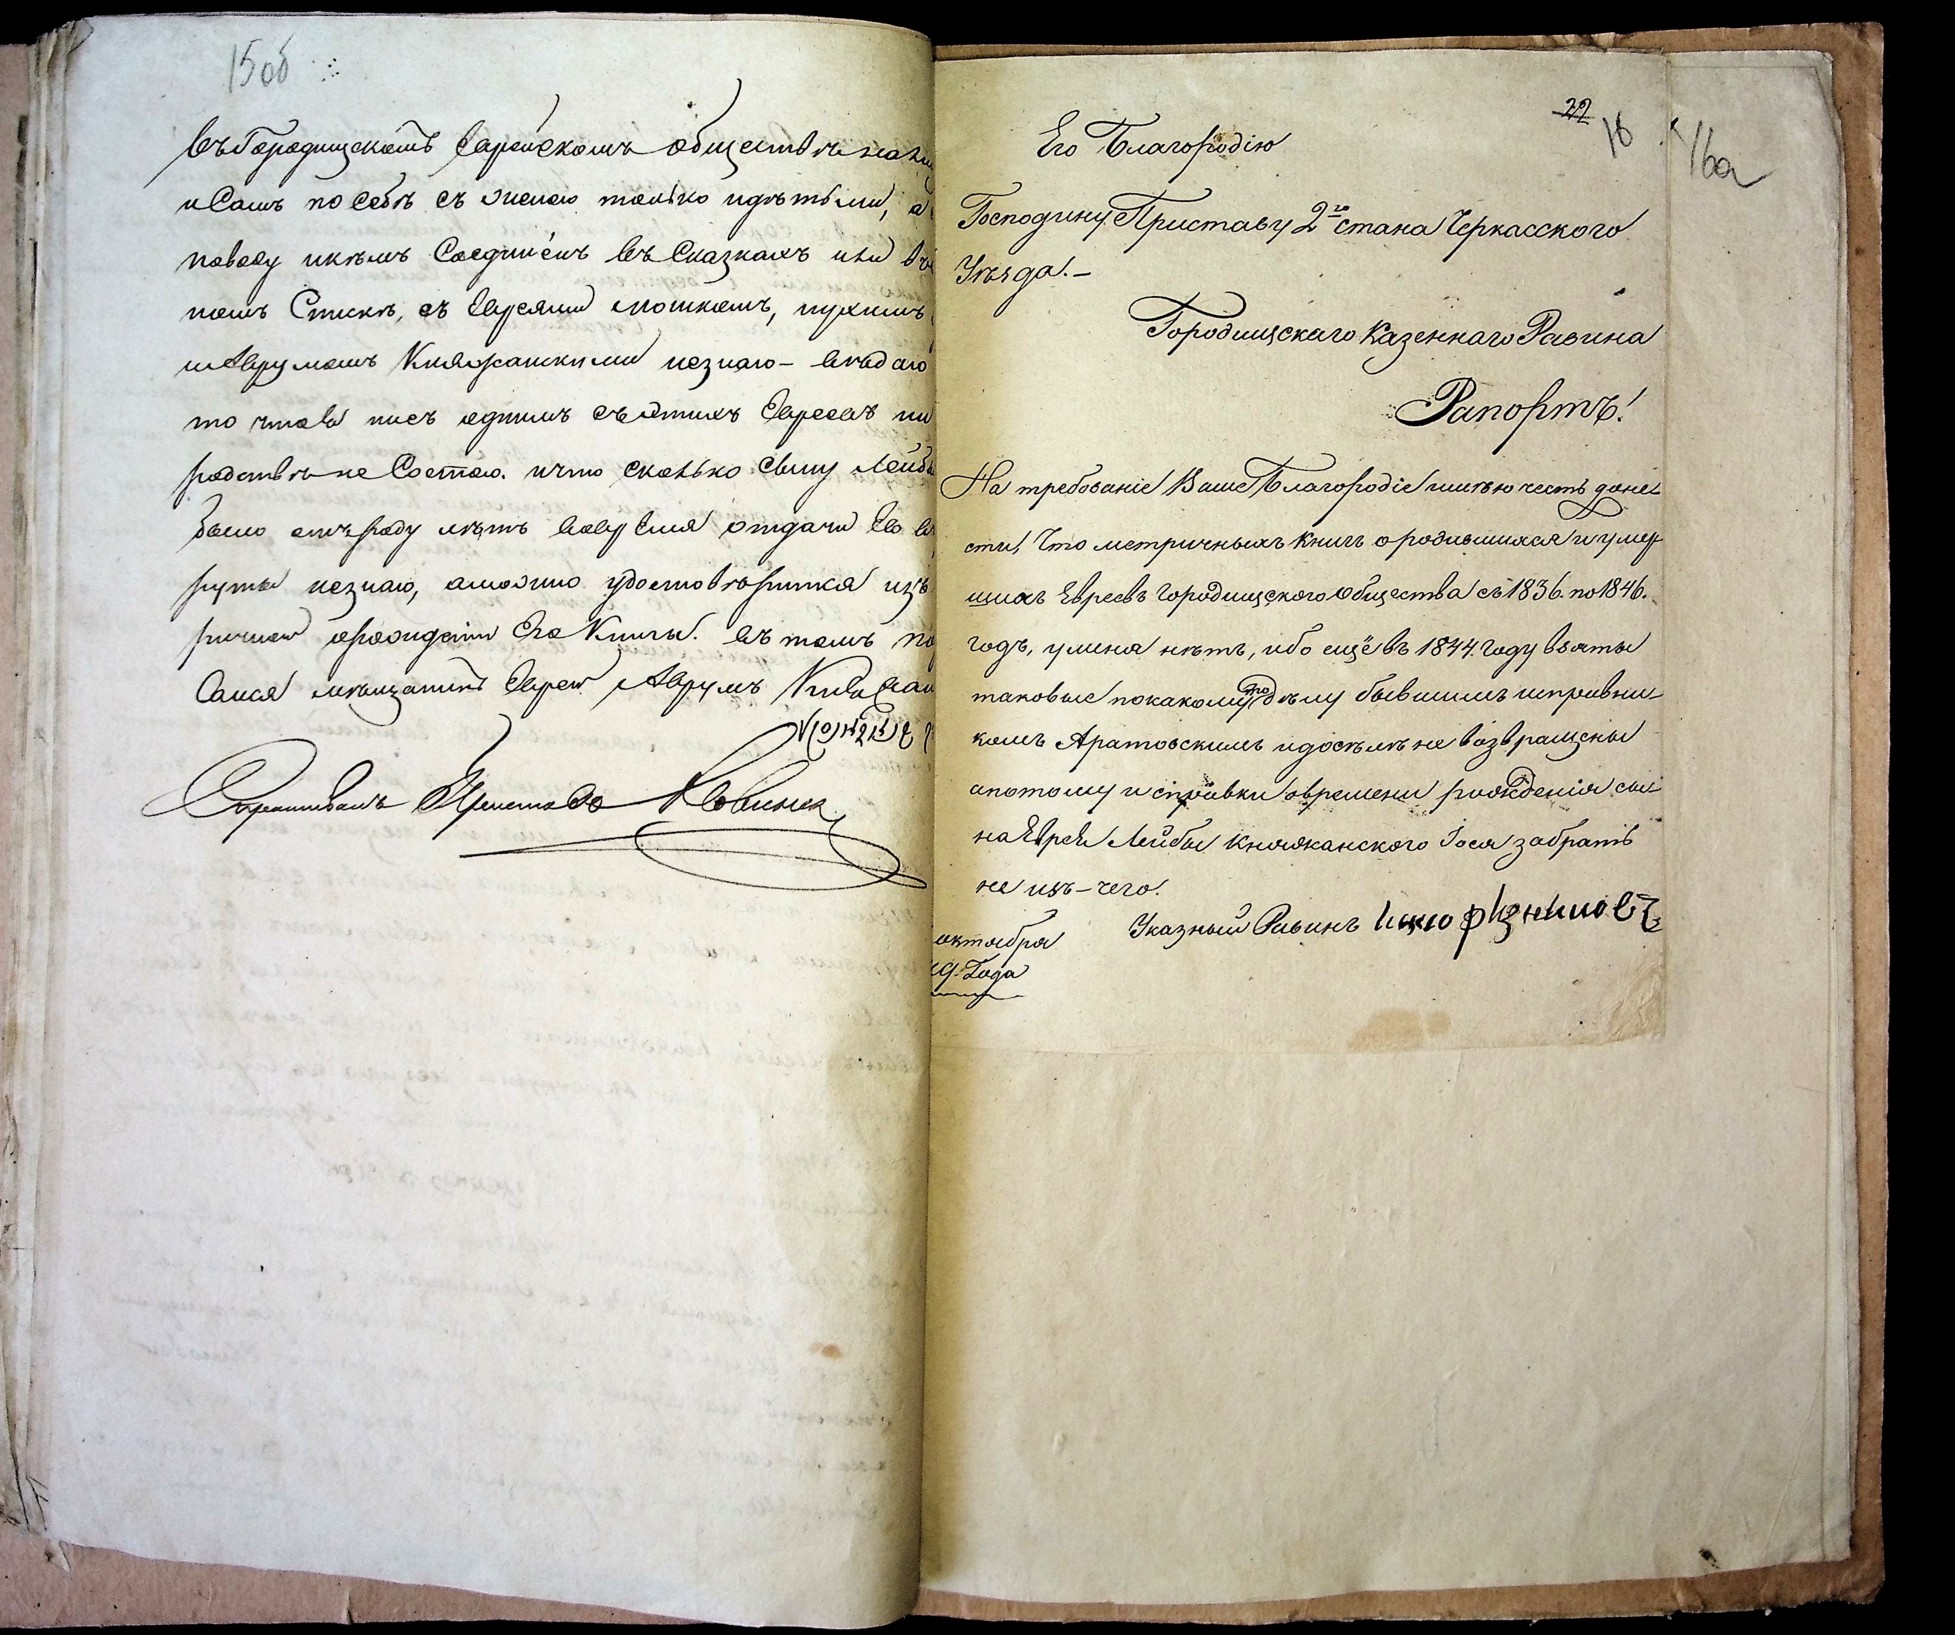 15 об
въ Городищскомъ Еврейскомъ обществѣ
и Самъ по себѣ съ женою только идѣтьми, а
поводу икѣмъ Соединёнъ въ Сказкахъ или
номъ Спискѣ, съ Евреями Мошкомъ,
и Аврумомъ Княжанскими незнаю – вѣдаю
то что я нисъ однимъ съ этихъ Евреевъ
родствѣ не Состою. ичто сколько сыну Лейбы
было отъ роду лѣтъ вовремя отдачи Его
руты незнаю, аможно удостовѣриться изъ
рожденіи Его Книги. въ томъ
мѣщанинъ Еврей Аврумъ
Спрашивалъ Приставъ
22
16
16а
Его Благородію
Господину Приставу 2го стана Черкасского
Уѣзда. –
Городищскаго Казеннаго Равина
Рапортъ!
На требованіе Ваше Благородіе имѣю честь доне-
сти, Что метричныхъ книгъ ородившихся и умер-
щихъ Евреевъ Городищского Общества съ 1836. по 1846.
годъ, уменя нѣтъ, ибо ещё въ 1844. году взяты
таковые покакому то дѣлу бывшимъ исправни-
комъ Аратовскимъ идосѣлѣ не возвращены
апотому и справки овремени рожденія сы-
на Еврея Лейбы Княжанского Іося забрать
не изъ – чего.
Указный Равинъ
октября
9. Года